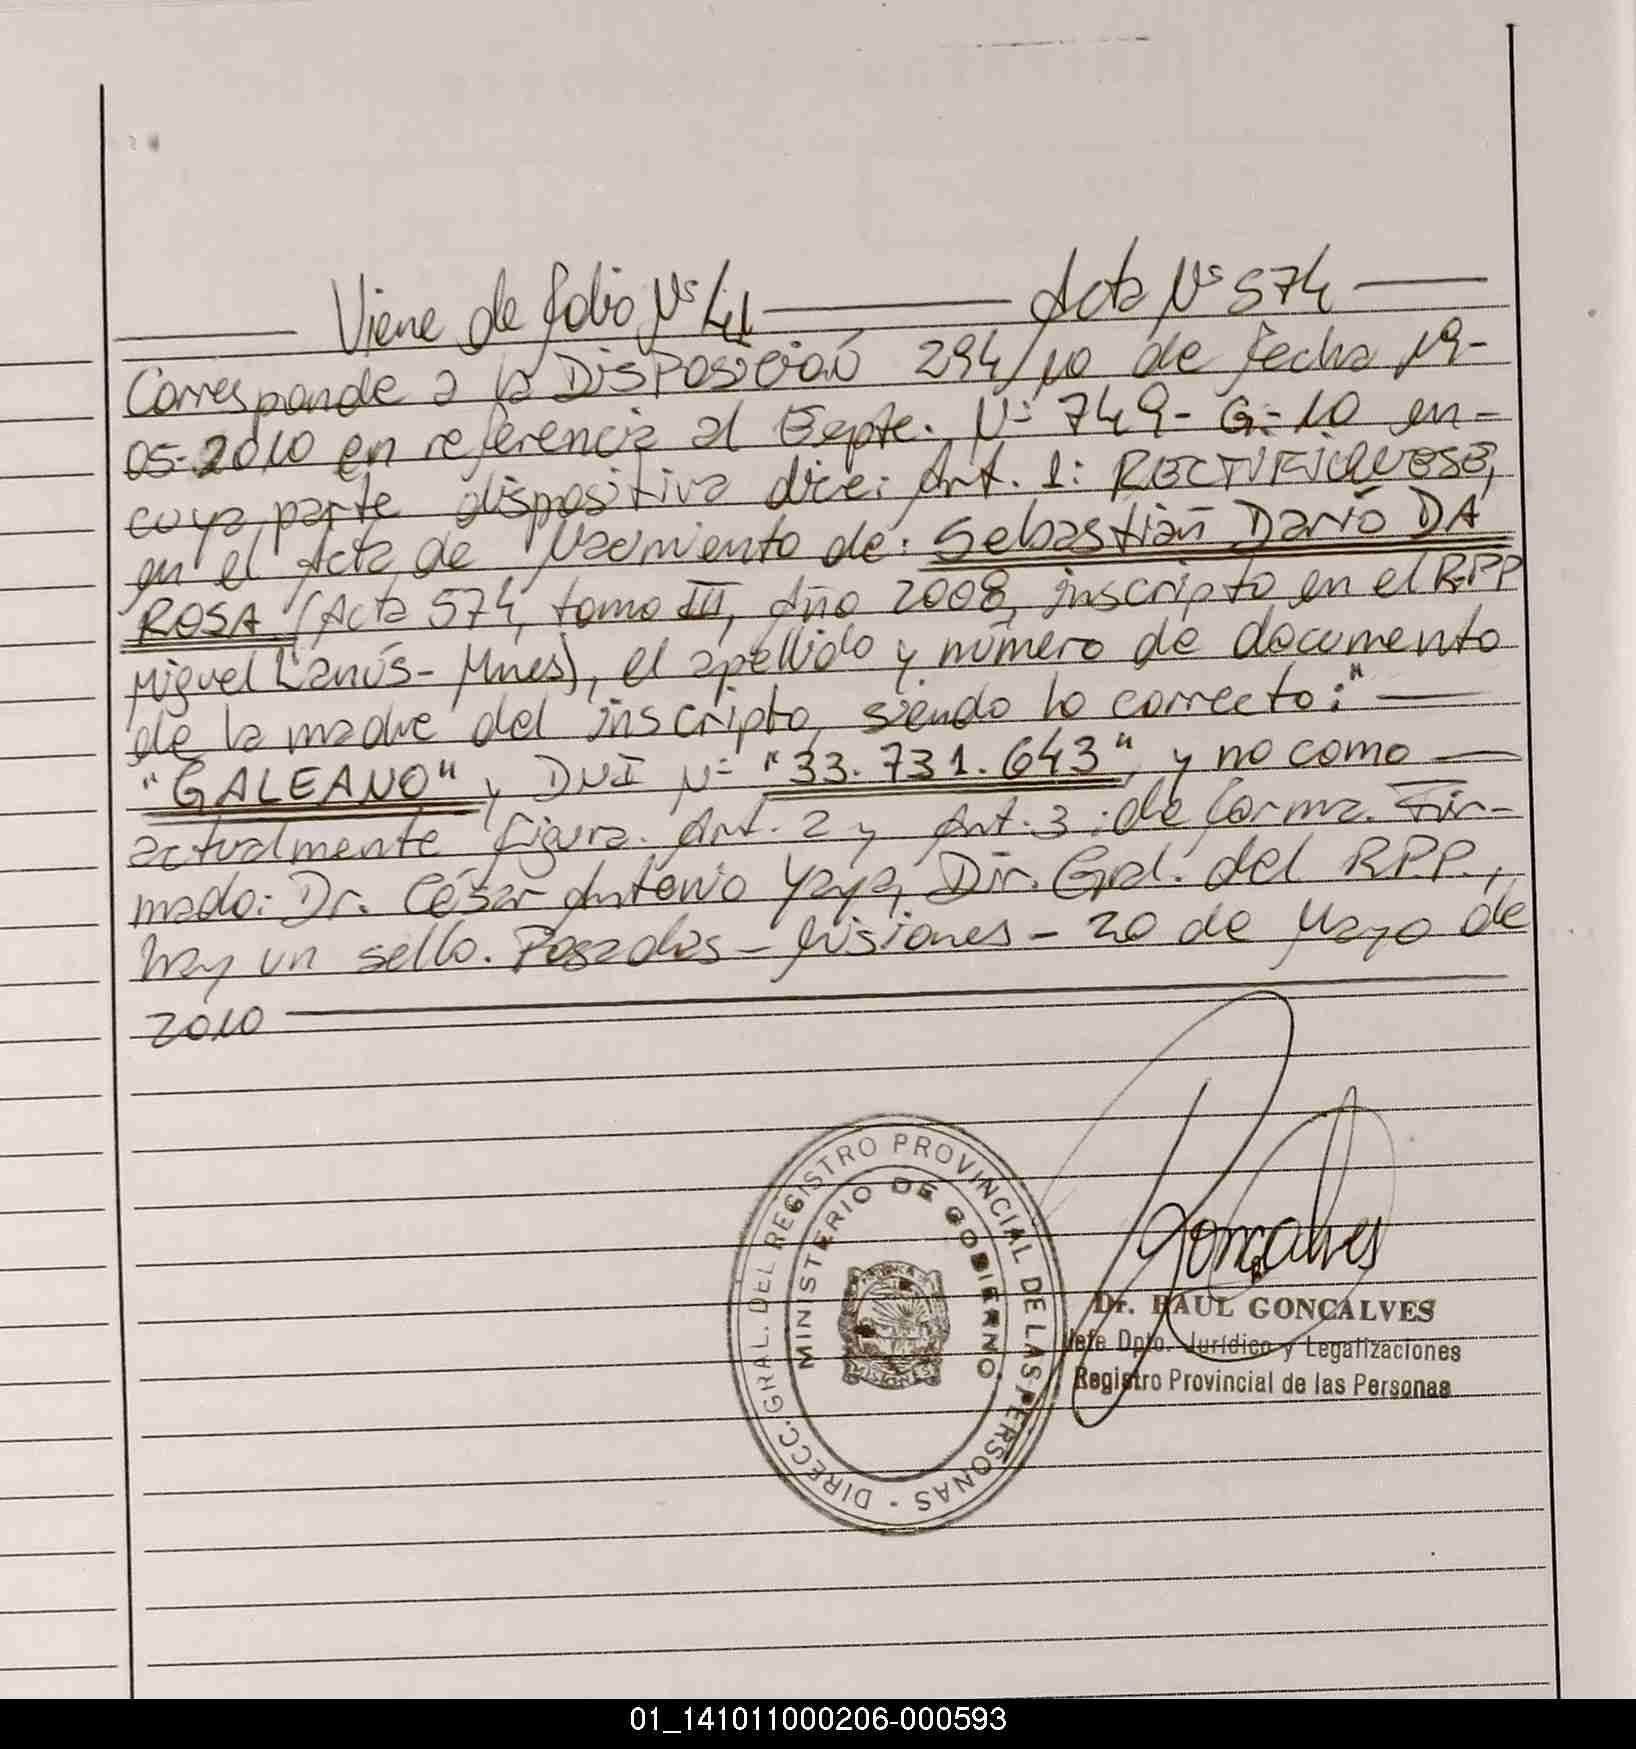 Viene de folio Nº 41 Acta Nº 574
Corresponde a la DISPOSICIÓN 294/10 de fecha 19-
05-2010 en referencia al Expte. Nº 749-G-10 en-
cuya parte dispositiva dice: Art. 1: RECTIFIQUESE,
en el Acta de Nacimiento de: Sebastián Darío DA
ROSA (Acta 574, tomo III, Año 2008, inscripto en el R.P.P
Miguel Lanús - Mnes), el apellido y número de documento
de la madre del inscripto, siendo lo correcto:"
"GALEANO" y DNI Nº "33.731.643", y no como
actualmente figura. Art. 2 y Art. 3: de forma. Fir-
mado: Dr. César Antonio Yaya, Dir. Gral. del R.P.P.,
hay un sello. Posadas - Misiones - 20 de Mayo de
2010
DIRECC. GRAL. DEL REGISTRO PROVINCIAL DE LAS PERSONAS -
MINISTERIO DE GOBIERNO
MISIONES
Goncalves
Dr. RAUL GONCALVES
Jefe Dpto. Jurídico y Legalizaciones
Registro Provincial de las Personas
01_141011000206-000593